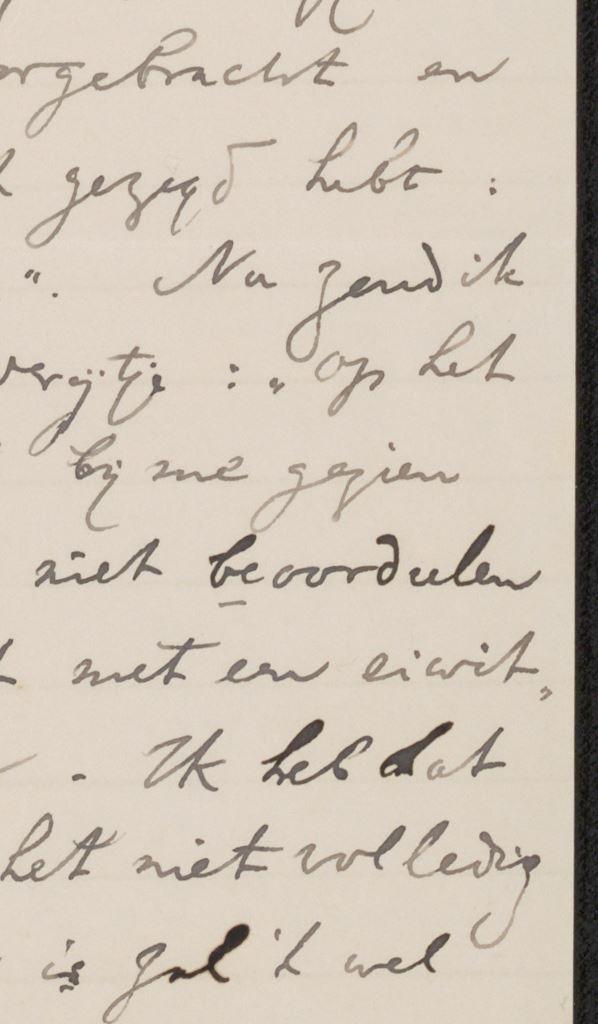 orgebracht en
gezegd hebt :
". Nu zend ik
: „ op het
bij me gezien
niet beoordeelen
met een eiwit„
- Ik heb dat
het niet volledig
is zal 't wel